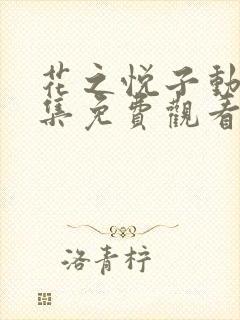 花之悦子動
集免費觀看
洛青柠